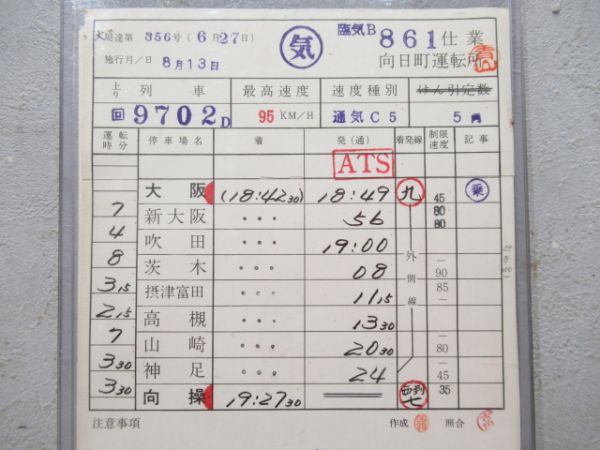 大局達第 356号(6月27日) 気 臨気B 861仕業
施行月/日 8月13日 向日町運転所
上り 列車 最高速度 速度種別 けん引定数
回9702D 95 KM/H 通気C5 5両
運転時分 停車場名 着 発(通) 着発線 制限速度 記事
ATS
大阪 (18:42 30) 18:49 九 45 乗
7 新大阪 ・・・ 56 80 80
4 吹田 ・・・ 19:00
8 茨木 ・・・ 08 外側線 — 90
3 15 摂津富田 ・・・ 11 15 85
2 15 高槻 ・・・ 13 30 —
7 山崎 ・・・ 20 30 — 80
3 30 神足 ・・・ 24 — 45
3 30 向操 19:27 30 西到七 35
注意事項 作成 照合